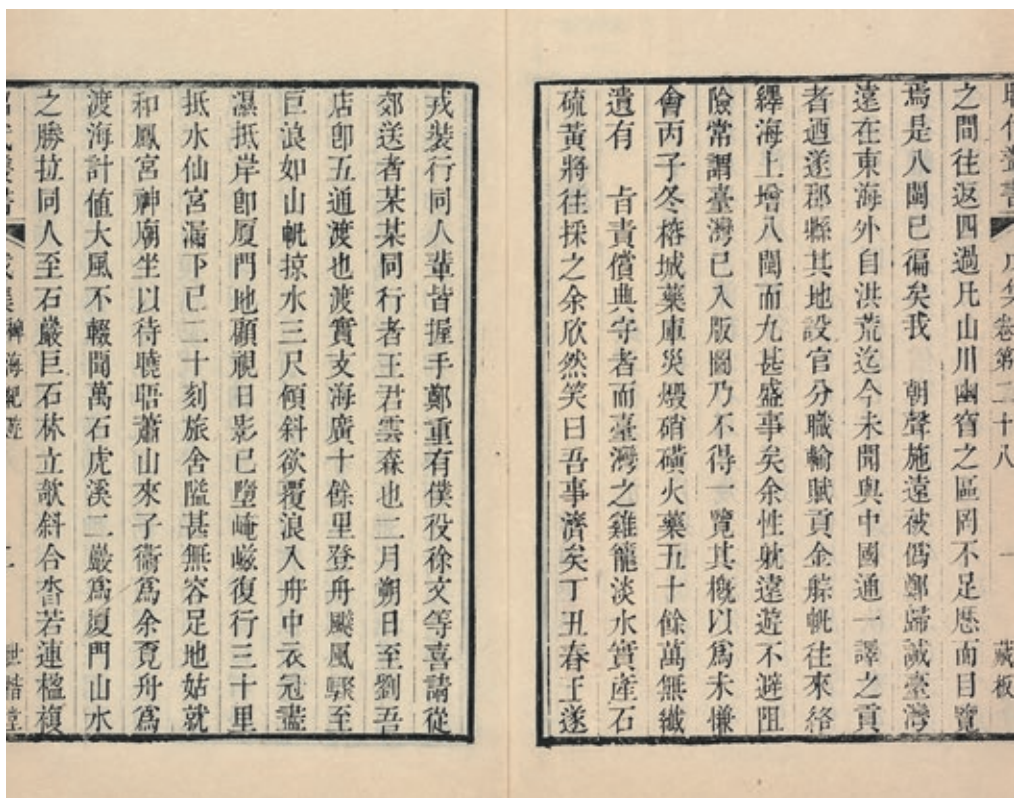 昭代叢書 戊集卷第二十八 一 藏板
之間往返四過凡山川幽窅之區罔不足歷而目覽
焉是八閩已徧矣我 朝聲施遠被僞鄭歸誠臺灣
遠在東海外自洪荒迄今未聞與中國通一譯之貢
者迺遂郡縣其地設官分職輸賦貢金艅帆往來絡
繹海上增八閩而九甚盛事矣余性躭遠遊不避阻
險常謂臺灣已入版圖乃不得一覽其槪以爲未慊
會丙子冬榕城藥庫災燬硝磺火藥五十餘萬無纖
遺有 旨責償典守者而臺灣之雞籠淡水實產石
硫黃將往採之余欣然笑曰吾事濟矣丁丑春王遂
戎裝行同人輩皆握手鄭重有僕役徐文等喜請從
郊送者某某同行者王君雲森也二月朔日至劉吾
店卽五通渡也渡實支海廣十餘里登舟颷風驟至
巨浪如山帆掠水三尺傾斜欲覆浪入舟中衣冠盡
濕抵岸卽厦門地顧視日影已墮崦嵫復行三十里
抵水仙宮漏下已二十刻旅舍隘甚無容足地姑就
和鳳宮神廟坐以待曉晤蕭山來子衞爲余覓舟爲
渡海計値大風不輟聞萬石虎溪二巖爲厦門山水
之勝拉同人至石巖巨石林立欹斜合沓若連楹複
昭代叢書 戊集 裨海紀遊 二 世楷堂